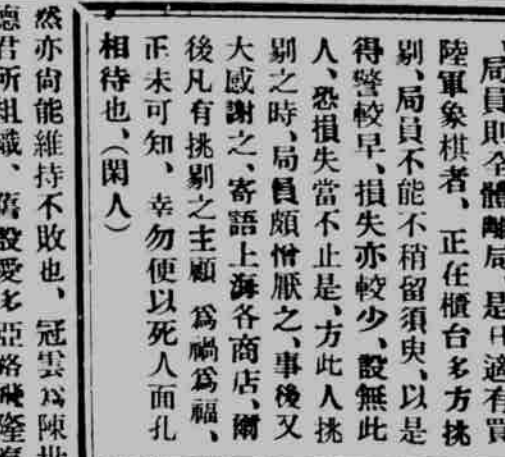 局員則全體離局、是日適有買
陸軍象棋者、正在櫃台多方挑
剔、局員不能不稍留須臾、以是
得警較早、損失亦較少、設無此
人、恐損失當不止是、方此人挑
剔之時、局員頗憎厭之、事後又
大感謝之、寄語上海各商店、爾
後凡有挑剔之主顧 爲禍爲福、
正未可知、幸勿便以死人面孔
相待也、(閑人)
然亦尙能維持不敗也、冠雲爲陳
德君所組織、舊設愛多亞路